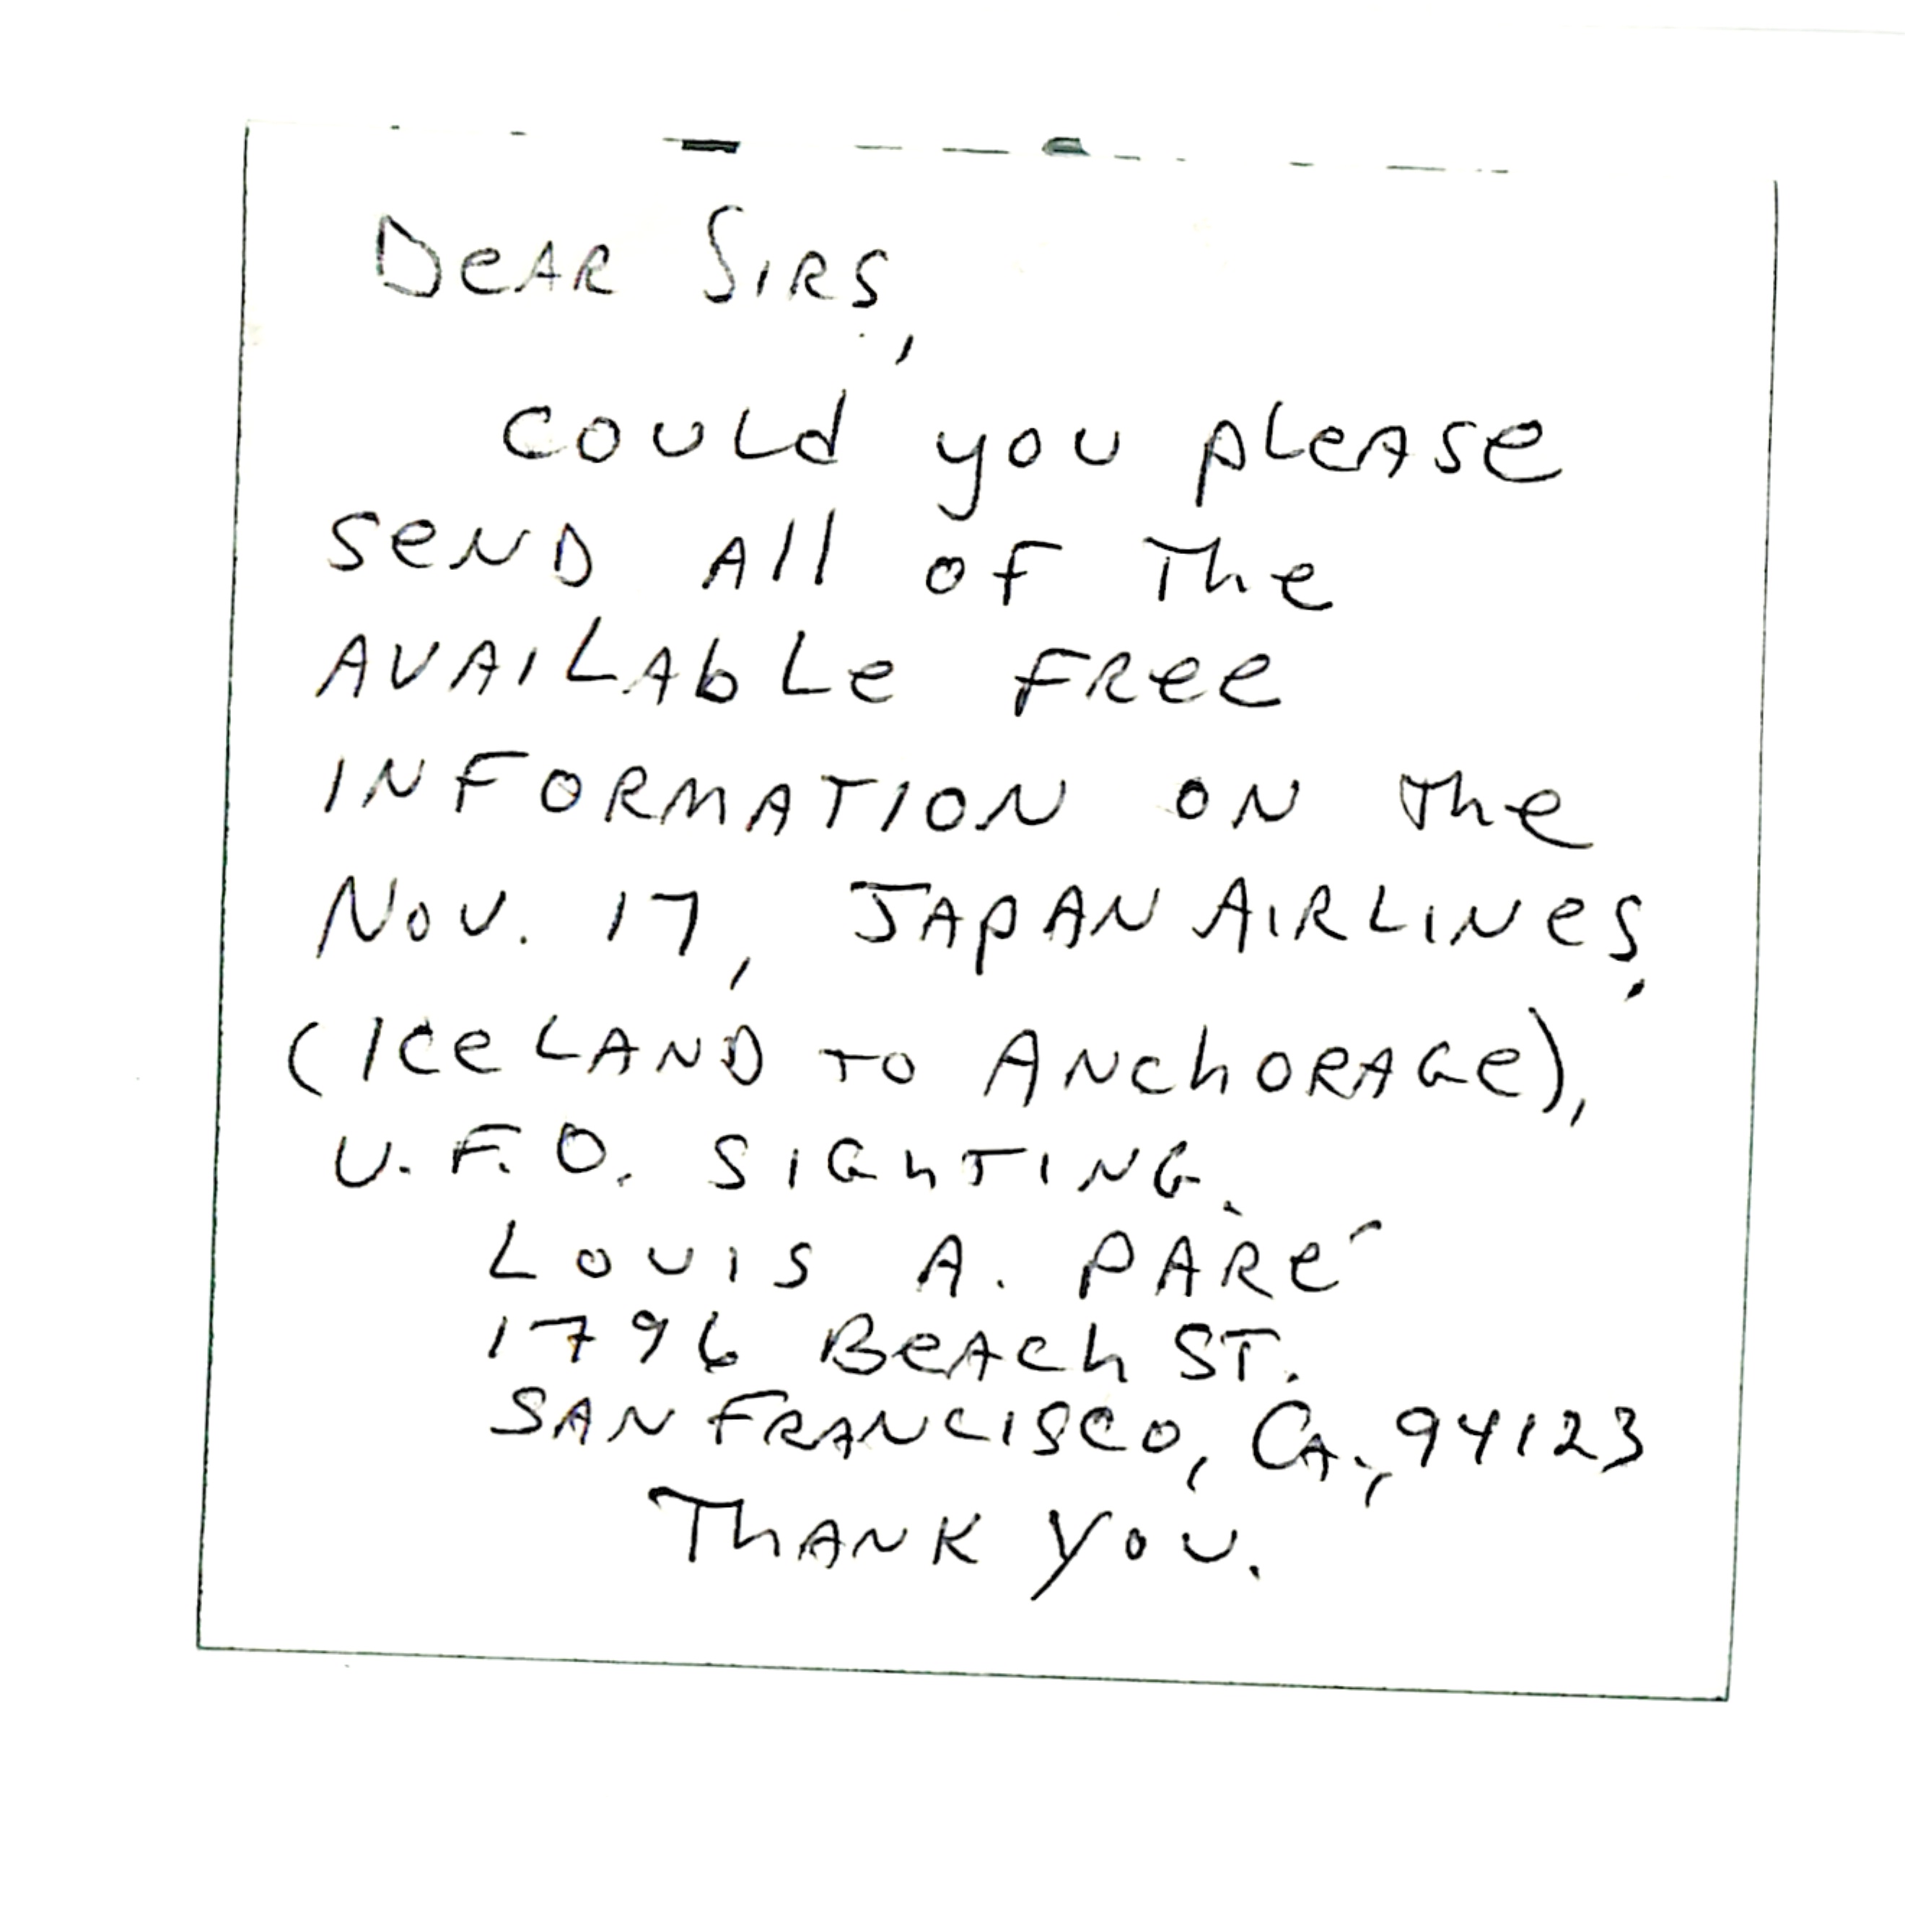 Dear Sirs,
could you please
send all of the
available free
information on the
Nov. 17, Japan Airlines,
(Iceland to Anchorage),
U.F.O. sighting.
Louis A. Paré
1796 Beach St.
San Francisco, Ca., 94123
Thank you.